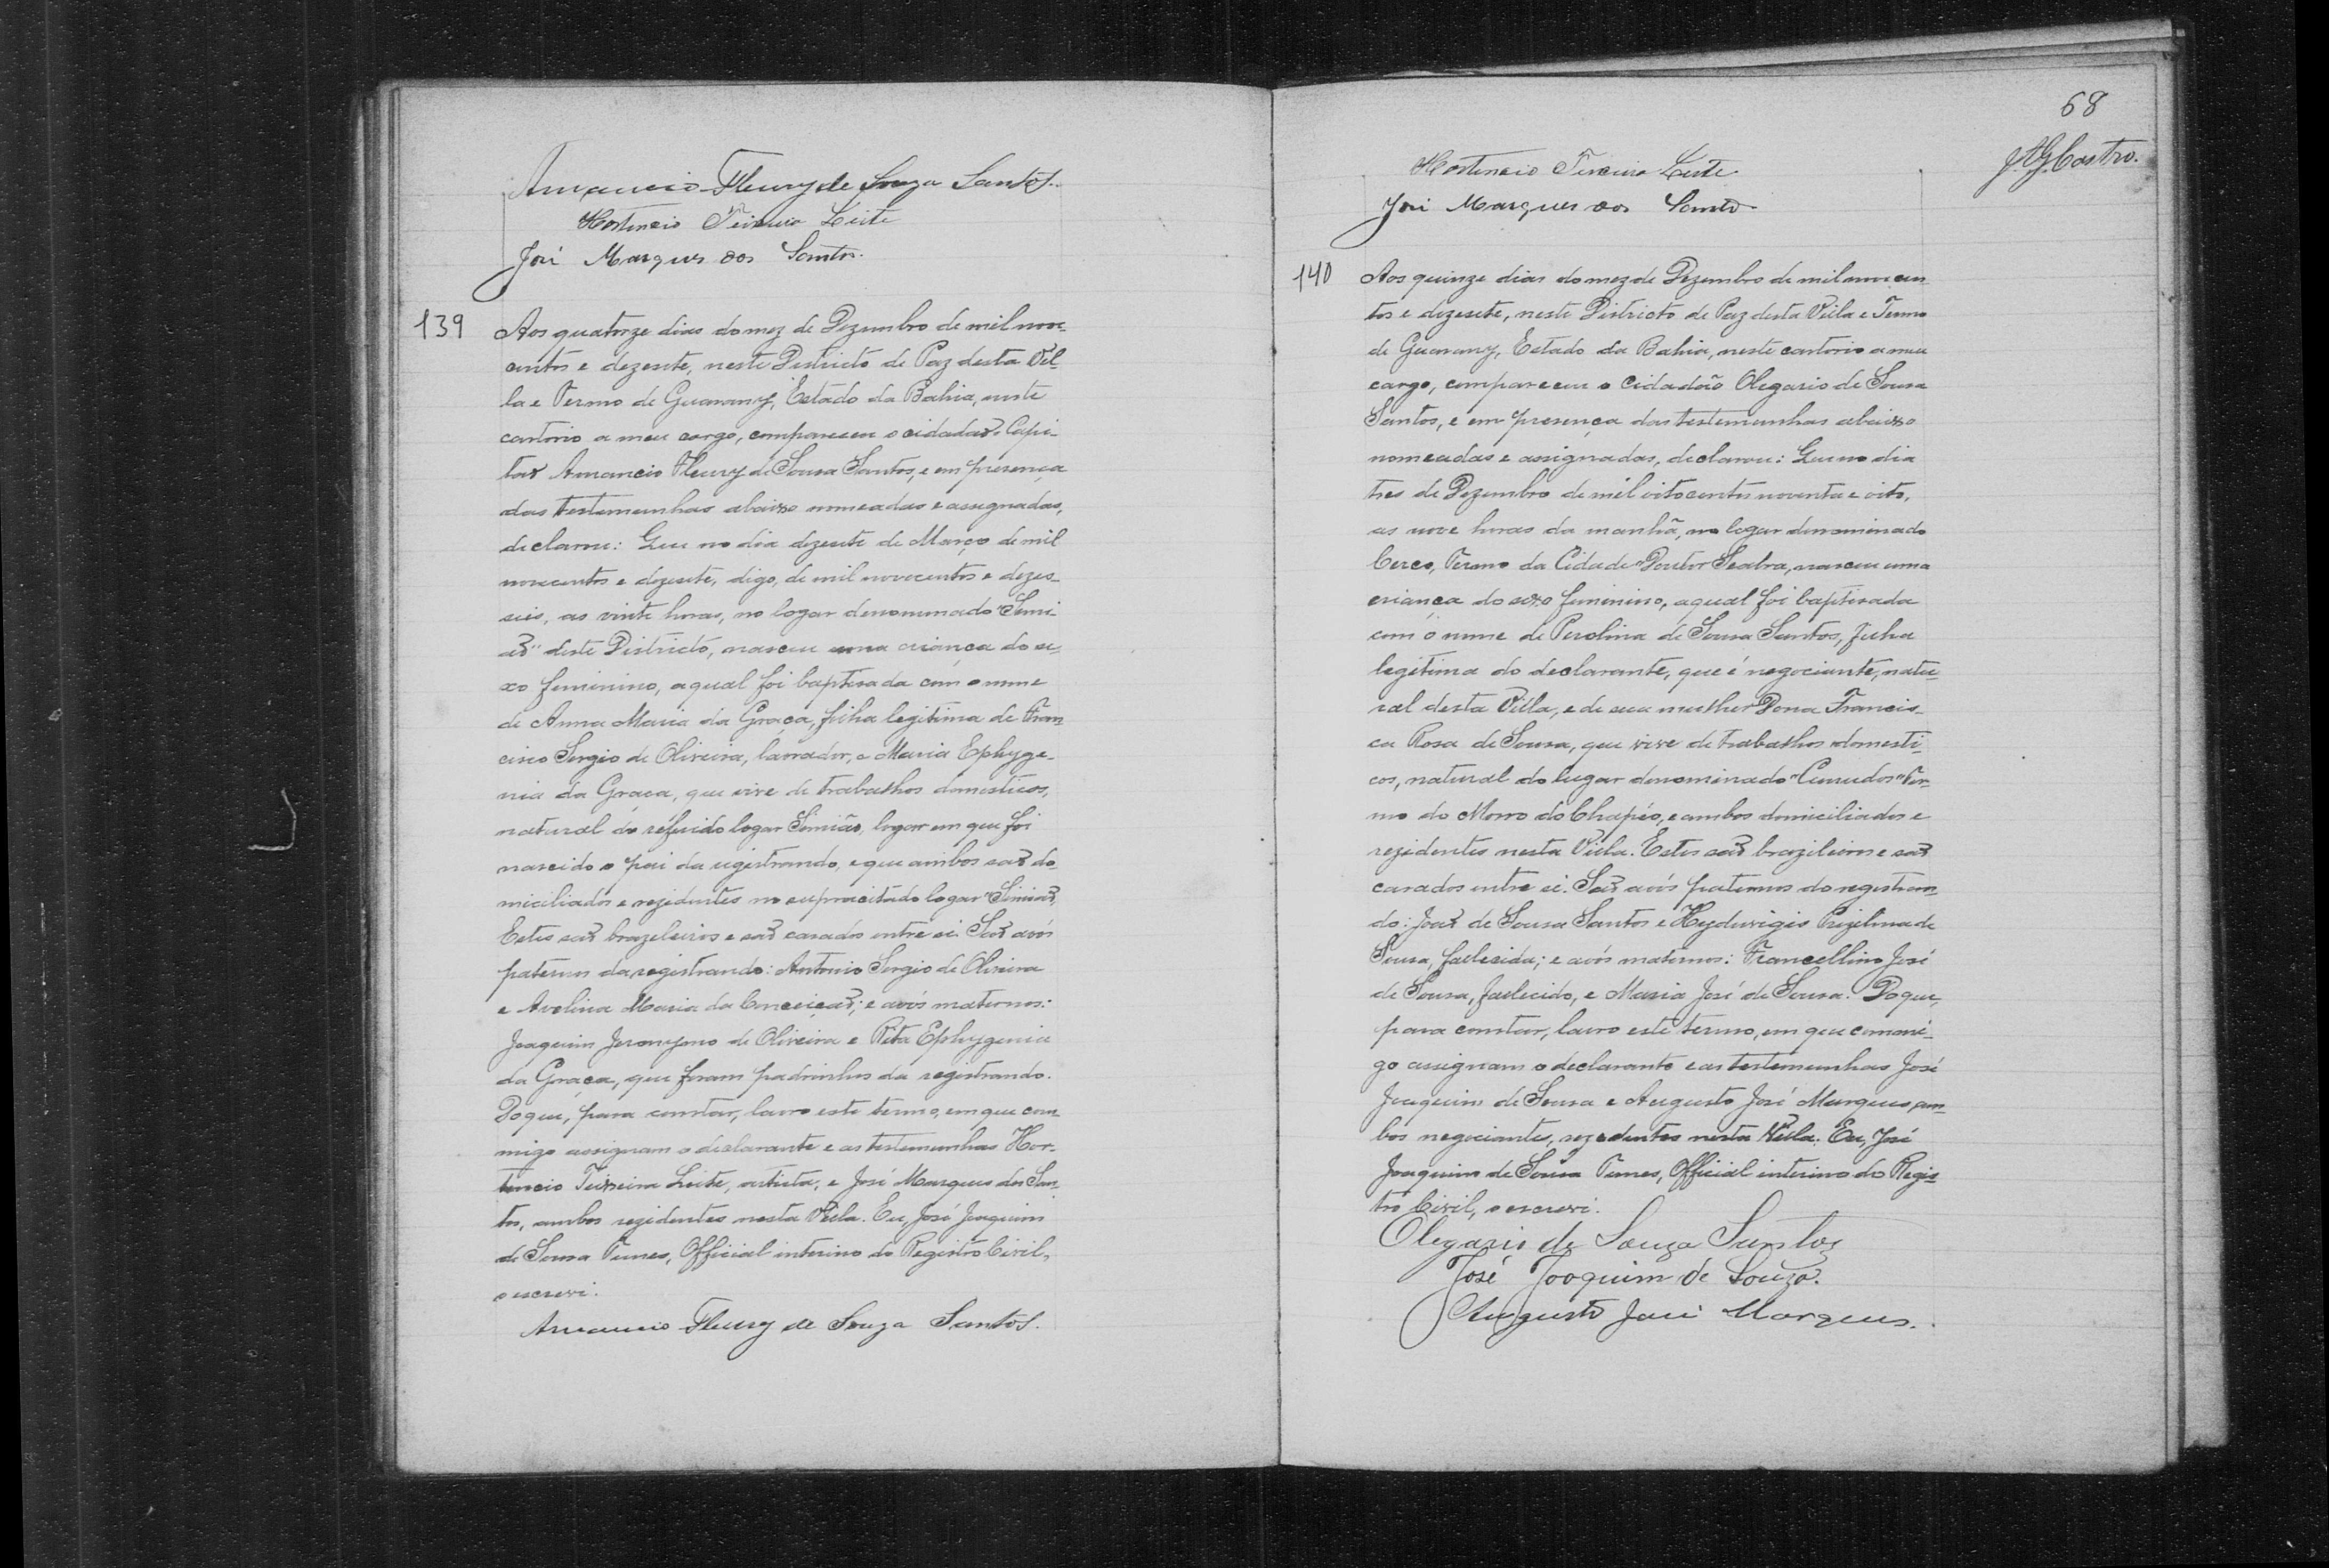 Amancio Fleury de Souza Santos.
Hortencio Teixeira Leite
José Marques dos Santos.
139
Aos quatorze dias do mez de Dezembro de mil nove-
centos e dezesete, neste Districto de Paz desta Vil-
la e Termo de Guarany, Estado da Bahia, neste
cartorio a meu cargo, compareceu o cidadão Capi-
tão Amancio Fleury de Sousa Santos, e em presença
das testemunhas abaixo nomeadas e assignadas,
declarou: Que no dia dezesete de Março de mil
novecentos e dezesete, digo, de mil novecentos e dezes-
seis, as vinte horas, no logar denominado "Simi-
ão" deste Districto, nasceu uma criança do se-
xo feminino, a qual foi baptisada com o nome
de Anna Maria da Graça, filha legitima de Fran-
cisco Sergio de Oliveira, lavrador, e Maria Ephyge-
nia da Graça, que vive de trabalhos domesticos,
natural do referido logar Simião, logar em que foi
nascido o pai da registrando, e que ambos são do-
miciliados e rezidentes no supracitado logar "Simião".
Estes são brazileiros e são casados entre si. São avós
paternos da registrando: Antonio Sergio de Oliveira
e Avelina Maria da Conceição; e avós maternos:
Joaquim Jeronymo de Oliveira e Rita Ephygenia
da Graça, que foram padrinhos da registrando.
Do que, para constar, lavro este termo, em que com-
migo assignam o declarante e as testemunhas Hor-
tencio Teixeira Leite, artista, e José Marques dos San-
tos, ambos rezidentes nesta Villa. Eu, José Joaquim
de Sousa Tunes, Official interino do Registro Civil,
o escrevi.
Amancio Fleury de Souza Santos.
68
J. A. G. Castro.
Hortencio Teixeira Leite
José Marques dos Santos
140
Aos quinze dias do mez de Dezembro de mil novecen-
tos e dezesete, neste Districto de Paz desta Villa e Termo
de Guarany, Estado da Bahia, neste cartorio a meu
cargo, compareceu o Cidadão Olegario de Sousa
Santos, e em presença das testemunhas abaixo
nomeadas e assignadas, declarou: Que no dia
tres de Dezembro de mil oitocentos noventa e oito,
as nove horas da manhã, no logar denominado
Cerco, Termo da Cidade "Doutor Seabra, nasceu uma
criança do sexo feminino, a qual foi baptisada
com o nome de Perolina de Sousa Santos, filha
legitima do declarante, que é negociante, natu-
ral desta Villa, e de sua mulher Dona Francis-
ca Rosa de Sousa, que vive de trabalhos domesti-
cos, natural do lugar denominado "Canudos" Ter-
mo do Morro do Chapéo, e ambos domiciliados e
rezidentes nesta Villa. Estes são brazileiros e são
casados entre si. São avós paternos do registran-
do: João de Sousa Santos e Hyduvigis de
Sousa, fallecida; e avós maternos: Francellino José
de Sousa, fallecido, e Maria José de Sousa. Do que,
para constar, lavro este termo, em que commi-
go assignam o declarante e as testemunhas José
Joaquim de Sousa e Augusto José Marques, am-
bos negociantes, rezedentes nesta Villa. Eu, José
Joaquim de Sousa Tunes, Official interino do Regis-
tro Civil, o escrevi.
Olegario de Souza Santos
José Joaquim de Souza.
Augusto José Marques.